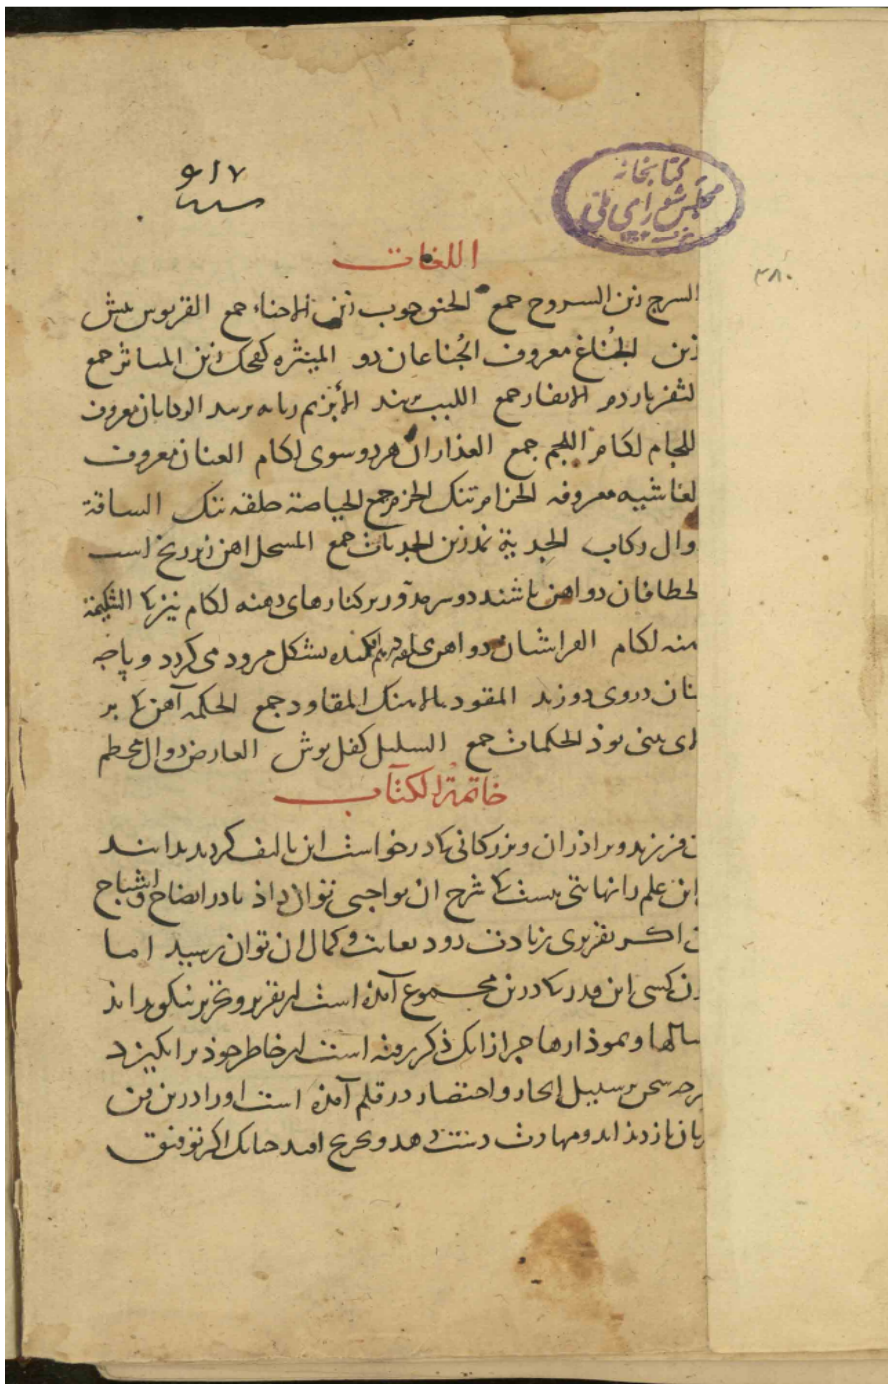 ۹۱۷
کتابخانه
مجلس شورای ملی
۳۸۰
اللغات
السرج زین السروج جمع الحنو چوب زین الاحناء جمع القربوس پیش
زین الجُناغ معروف الجُناغان دو المیثره کفجک زین المیاثر جمع
لثفر باردم الاثفار جمع اللبب بر بند الأبزیم معروف
للجام لکام اللجم جمع العذاران هر دو سوی لکام العنان معروف
لغاشیه معروفه الحزام تنک الحزم جمع الحیاصة حلقه تنک الساقة
وال رکاب الجدیة نمد زین الجدیات جمع المسحل اهن زیر زنخ است
لخطافان دو اهن باشند دو سر بر کنارهای دهنه لکام تیز کی الشکیمة
هنه لکام الفراشان دو اهن افکنده بشکل مرود می کردد و پاچه
نان در وی دوزند المقود بالاهنک المقاود جمع الحکمه آهن کی بر
الای بینی بود الحکمات جمع السلیل کفل پوش العارض دوال محطم
خاتمة الکتاب
ن فرزند و براذران و بزرکانی کی درخواست این تالیف کردند بدانند
این علم را نهایتی نیست کی شرح ان بواجبی توان داذ یا در ایضاح و اشباح
ن اکر تقریری زیادت رود بغایت و کمال ان توان رسید اما
ون کسی این قدر کی درین مجموع آمده است از تقریر و تحریر نیکو بداند
سالها و نموذارها جز از انک ذکر رفته است از خاطر خوذ برانکیزد
رچه سخن بر سبیل ایجاز و اختصار در قلم آمده است او را درین فن
بان باز دید اید و مهارت دست دهد و تخریج افتد چنانک اکر توفیق